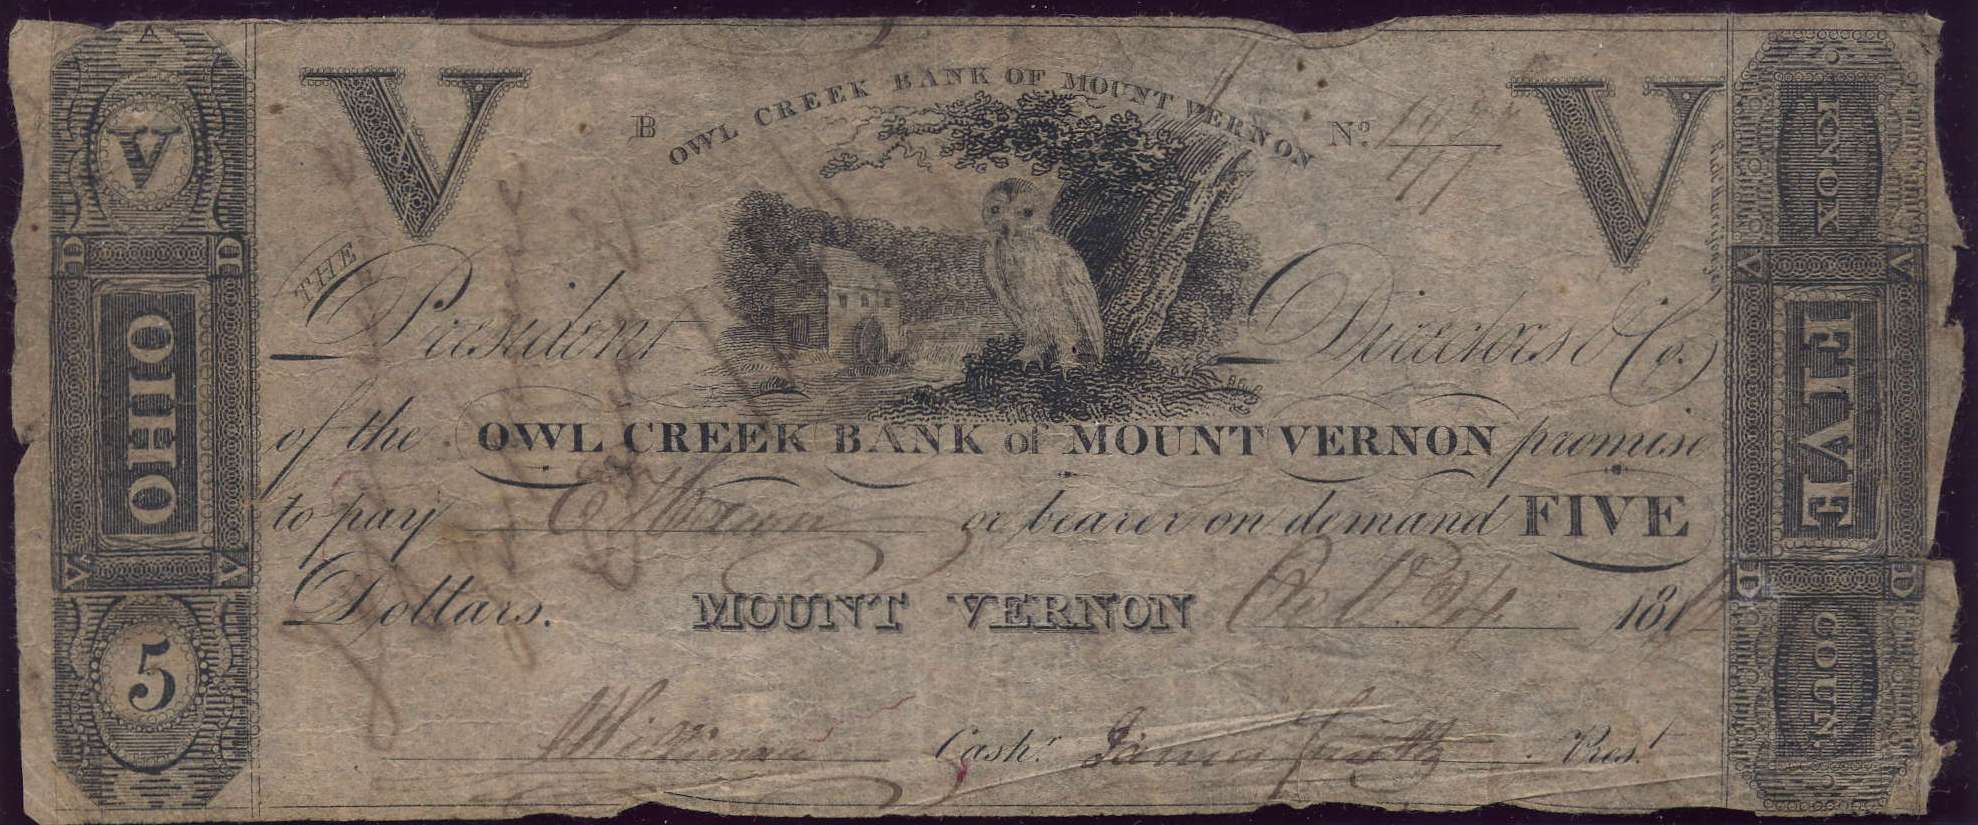 V
V
OWL CREEK BANK OF MOUNT VERNON
B
No.
V
THE
President
Directors & Co.
of the OWL CREEK BANK of MOUNT VERNON promise
to pay or bearer on demand FIVE
Dollars. MOUNT VERNON 24 181
Cashr. James Smith Prest
OHIO
5
KNOX
FIVE
COUN.
D
D
V
V
V
V
D
D